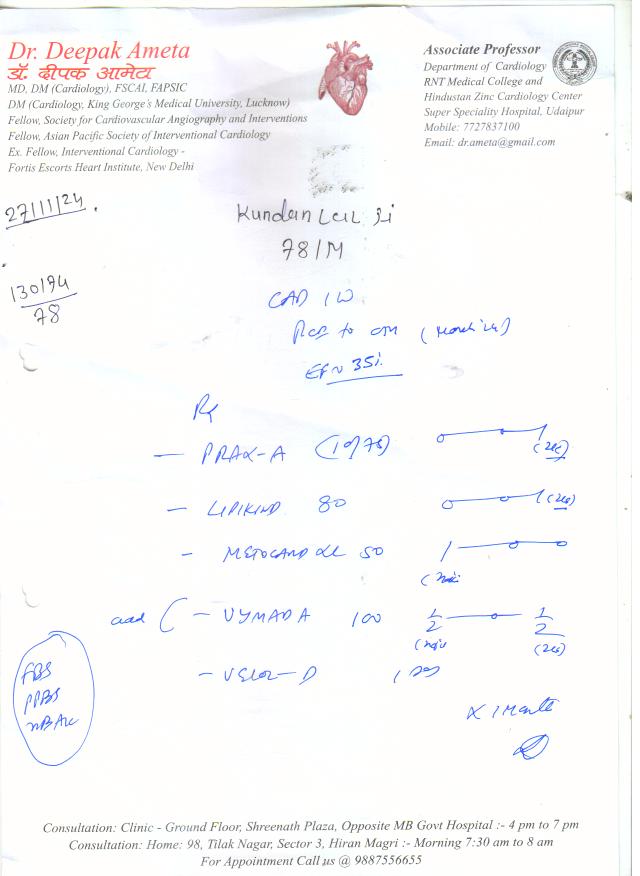 Dr. Deepak Ameta
डॉ. दीपक आमेटा
MD, DM (Cardiology), FSCAI, FAPSIC
DM (Cardiology, King George's Medical University, Lucknow)
Fellow, Society for Cardiovascular Angiography and Interventions
Fellow, Asian Pacific Society of Interventional Cardiology
Ex. Fellow, Interventional Cardiology -
Fortis Escorts Heart Institute, New Delhi
Associate Professor
Department of Cardiology
RNT Medical College and
Hindustan Zinc Cardiology Center
Super Speciality Hospital, Udaipur
Mobile: 7727837100
Email: dr.ameta@gmail.com
27/11/24
Kundan Lal Ji
78/M
130/74
78
CAD
to OM
EF~35%
Rx
— PRAX-A (10/75)
- LIPIKIND 80
- METOCARD XL 50
add ( - VYMADA 100 1/2 1/2
X 1 Month
FBS
PPBS
HBA1c
Consultation: Clinic - Ground Floor, Shreenath Plaza, Opposite MB Govt Hospital :- 4 pm to 7 pm
Consultation: Home: 98, Tilak Nagar, Sector 3, Hiran Magri :- Morning 7:30 am to 8 am
For Appointment Call us @ 9887556655